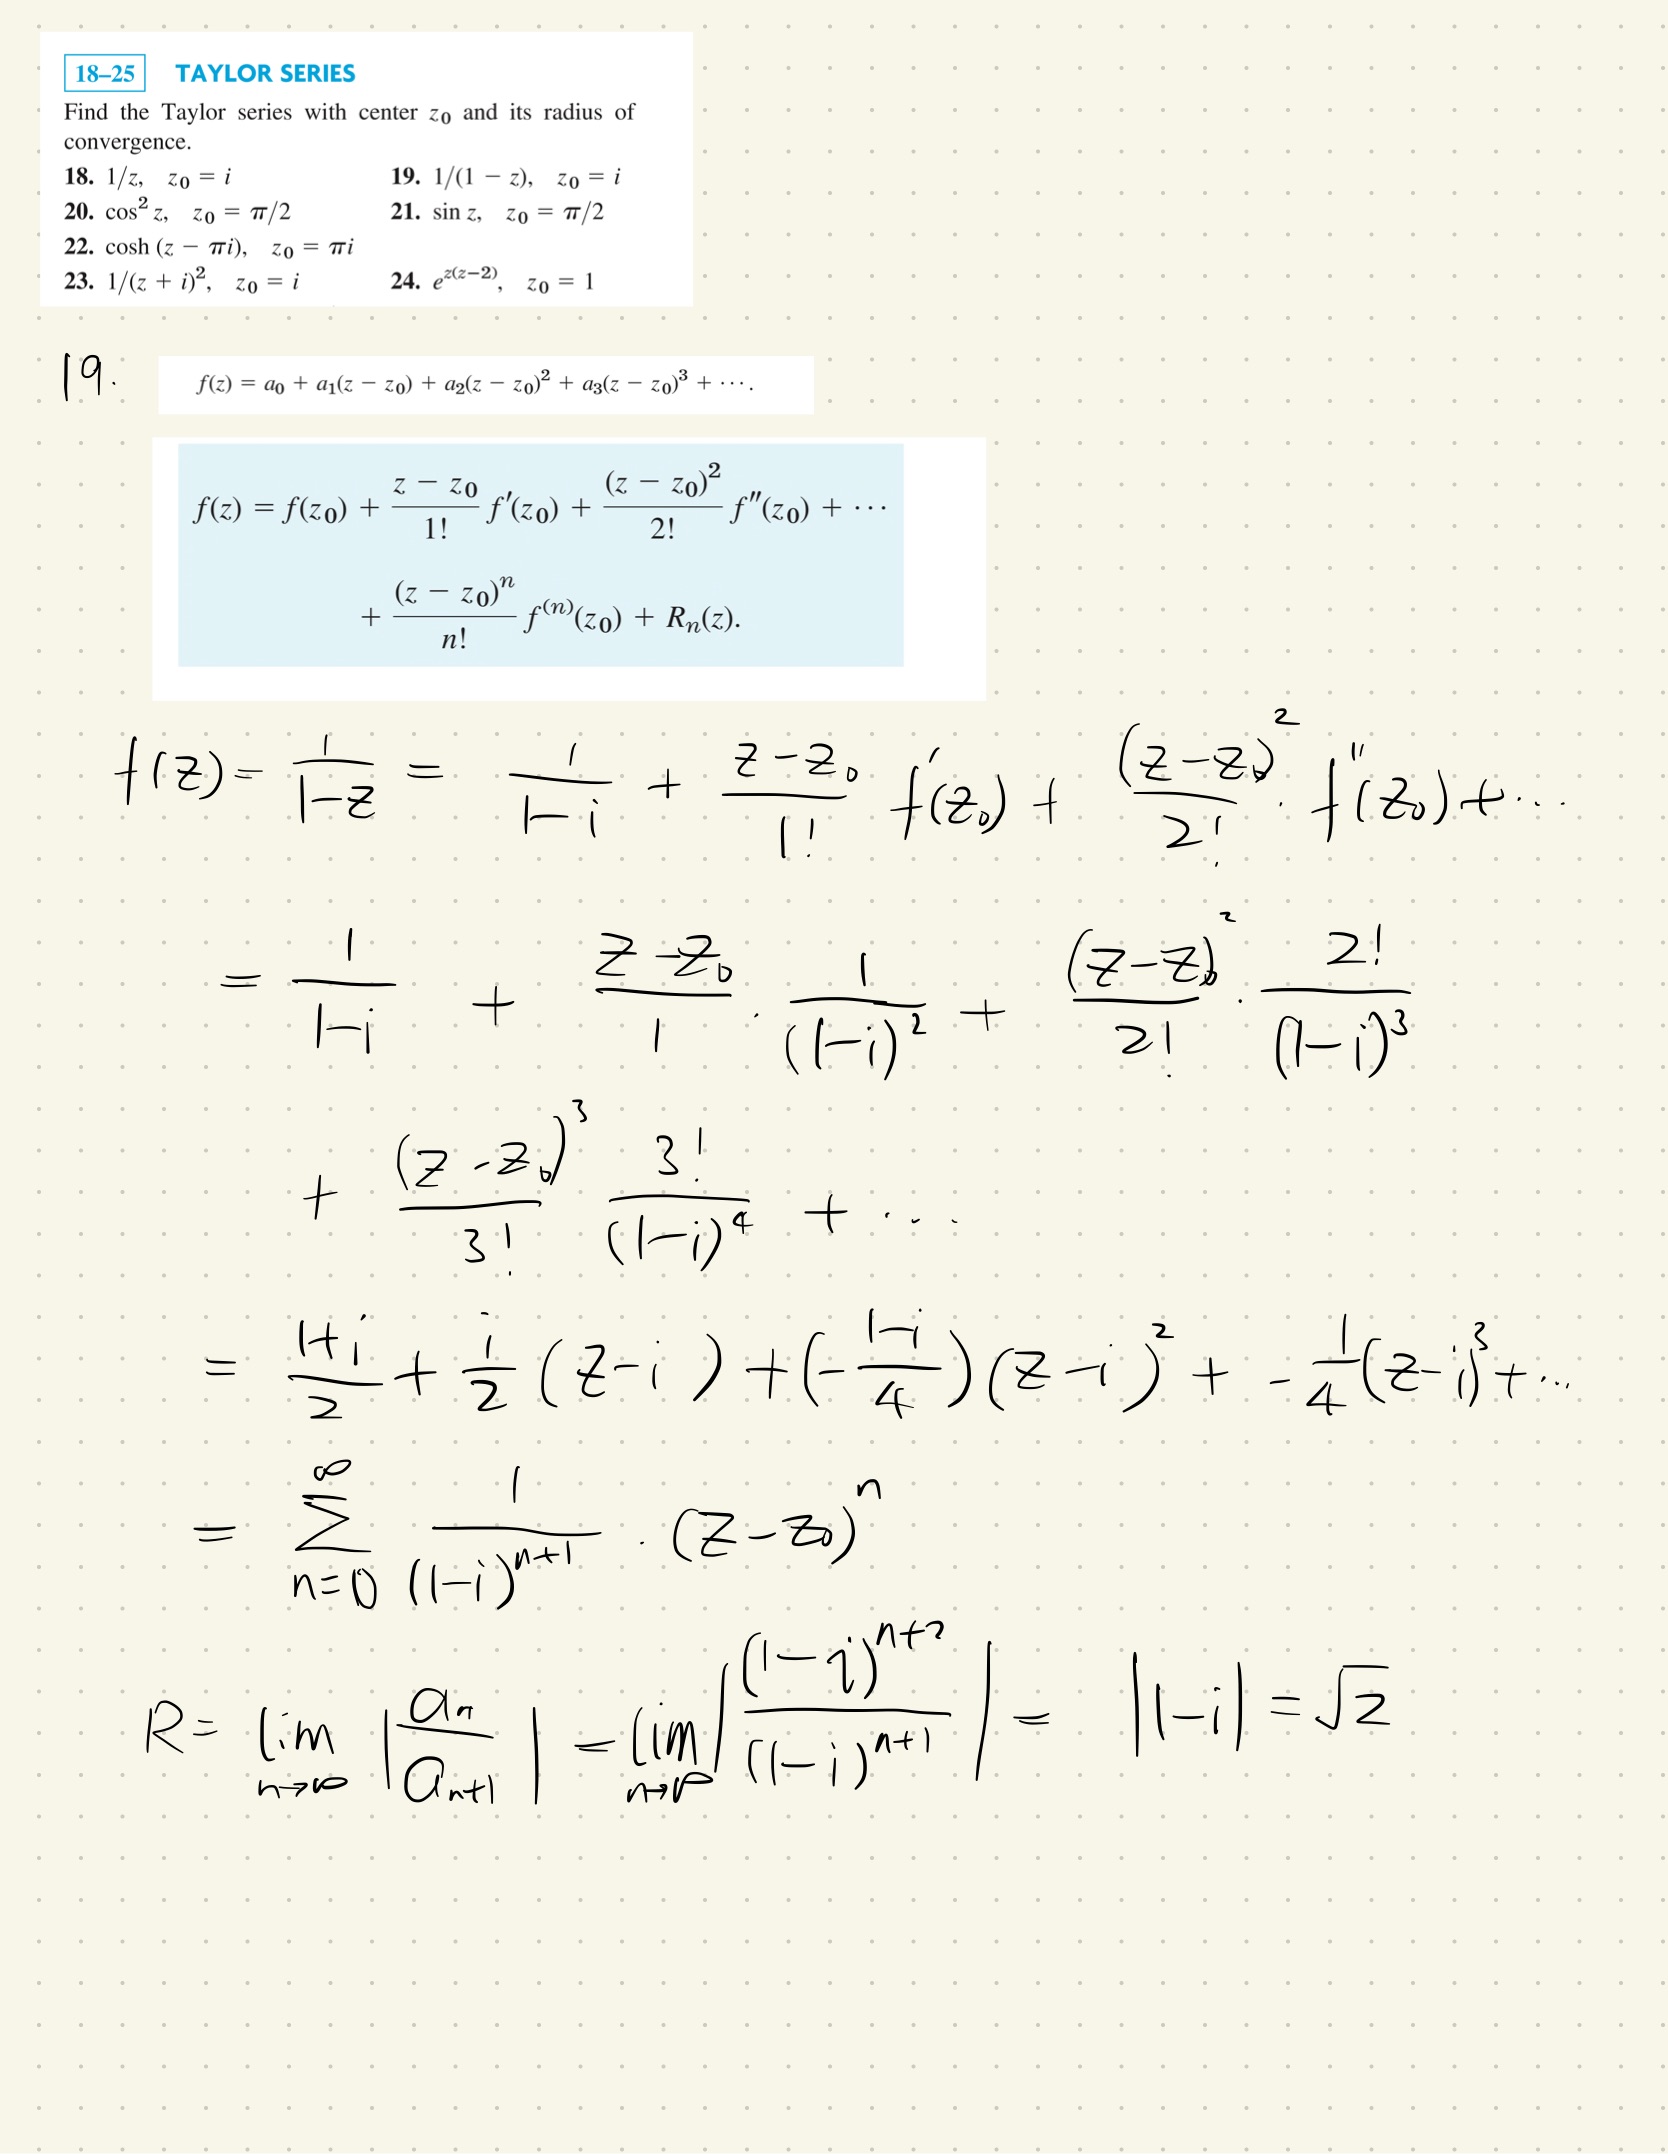 18–25 TAYLOR SERIES
Find the Taylor series with center z₀ and its radius of
convergence.
18. 1/z, z₀ = i 19. 1/(1 − z), z₀ = i
20. cos² z, z₀ = π/2 21. sin z, z₀ = π/2
22. cosh (z − πi), z₀ = πi
23. 1/(z + i)², z₀ = i 24. e^{z(z−2)}, z₀ = 1
19. f(z) = a₀ + a₁(z − z₀) + a₂(z − z₀)² + a₃(z − z₀)³ + ⋯.
f(z) = f(z₀) + \frac{z − z₀}{1!} f′(z₀) + \frac{(z − z₀)²}{2!} f″(z₀) + ⋯
+ \frac{(z − z₀)^n}{n!} f^{(n)}(z₀) + R_n(z).
f(z) = \frac{1}{1−z} = \frac{1}{1−i} + \frac{z−z₀}{1!} f′(z₀) + \frac{(z−z₀)²}{2!} · f″(z₀) + ⋯
= \frac{1}{1−i} + \frac{z−z₀}{1} · \frac{1}{(1−i)²} + \frac{(z−z₀)²}{2!} · \frac{2!}{(1−i)³}
+ \frac{(z−z₀)³}{3!} \frac{3!}{(1−i)⁴} + ⋯
= \frac{1+i}{2} + \frac{i}{2} (z−i) + (−\frac{1−i}{4})(z−i)² + −\frac{1}{4}(z−i)³ + ⋯
= \sum_{n=0}^{∞} \frac{1}{(1−i)^{n+1}} · (z−z₀)^n
R = \lim_{n→∞} |\frac{a_n}{a_{n+1}}| = \lim_{n→∞} |\frac{(1−i)^{n+2}}{(1−i)^{n+1}}| = |1−i| = √2